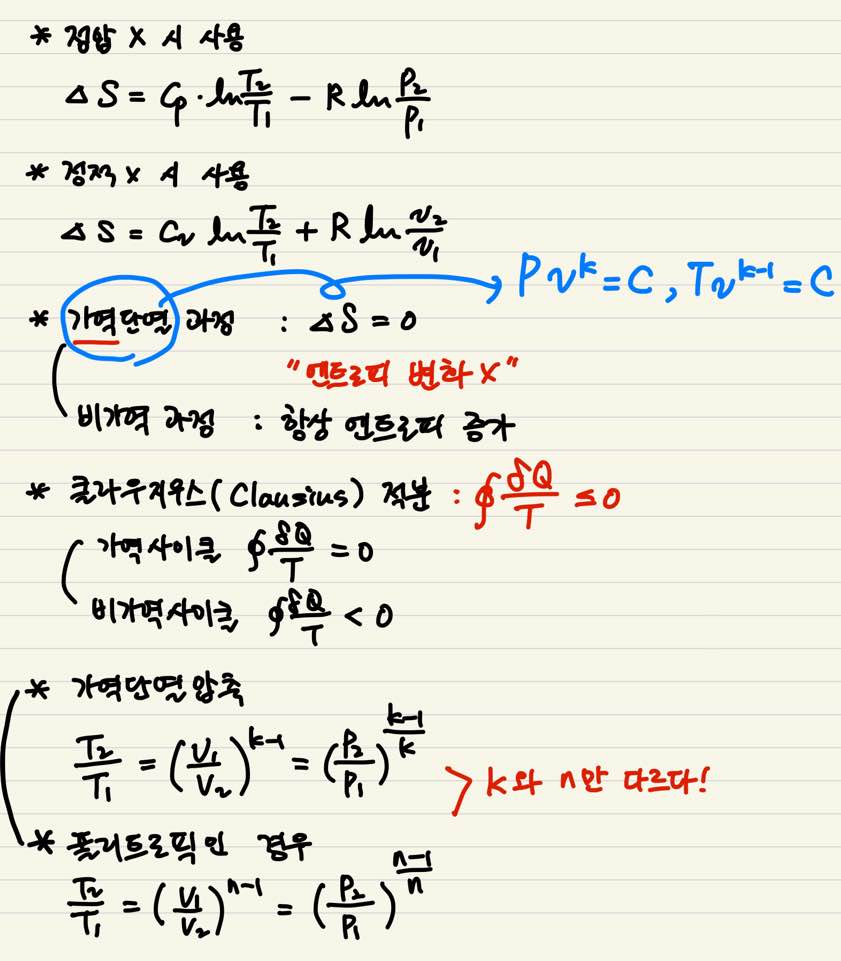 * 정압 X 시 사용
ΔS = Cp · ln T₂/T₁ − R ln P₂/P₁
* 정적 X 시 사용
ΔS = Cv ln T₂/T₁ + R ln v₂/v₁
Pv^k = C, Tv^(k-1) = C
* 가역단열 과정 : ΔS = 0
"엔트로피 변화 X"
비가역 과정 : 항상 엔트로피 증가
* 클라우지우스(Clausius) 적분 : ∮ δQ/T ≤ 0
가역사이클 ∮ δQ/T = 0
비가역사이클 ∮ δQ/T < 0
* 가역단열압축
T₂/T₁ = (V₁/V₂)^(k-1) = (P₂/P₁)^((k-1)/k)
> k와 n만 다르다!
* 폴리트로픽인 경우
T₂/T₁ = (V₁/V₂)^(n-1) = (P₂/P₁)^((n-1)/n)